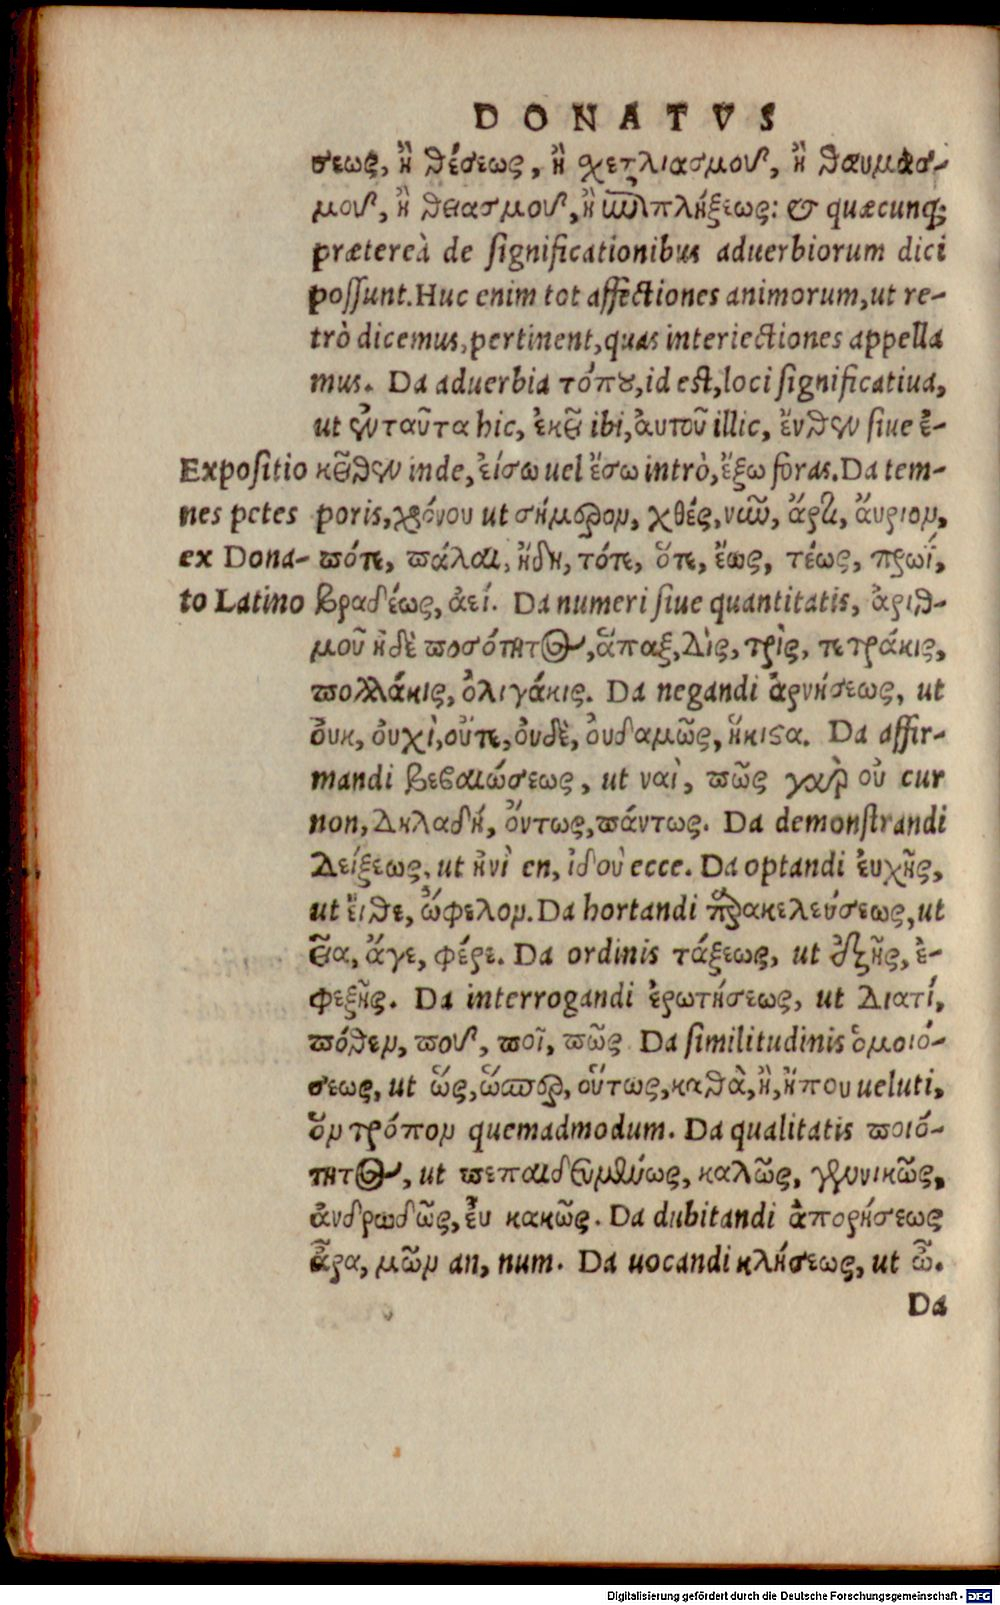 DONATVS
σεως, ἢ θέσεως, ἢ σχετλιασμοῦ, ἢ θαυμασ-
μοῦ, ἢ θειασμοῦ, ἢ ἐπιπλήξεως: & quæcunq;
prætereà de significationibus aduerbiorum dici
possunt. Huc enim tot affectiones animorum, ut re-
trò dicemus, pertinent, quas interiectiones appella
mus. Da aduerbia τόπου, id est, loci significatiua,
ut ἐνταῦτα hic, ἐκεῖ ibi, ἀυτοῦ illic, ἔνθεν siue ἐ-
κεῖθεν inde, ἐίσω uel ἔσω intrò, ἔξω foras. Da tem-
poris, χρόνου ut σήμερον, χθές, νῶν, ἄρτι, ἄυριον,
πότε, πάλαι, ἤδη, τότε, ὅτε, ἕως, τέως, πρωΐ,
βραδέως, ἀεί. Da numeri siue quantitatis, ἀριθ-
μοῦ ἠδὲ ποσότητος, ἅπαξ, δὶς, τρὶς, τετράκις,
πολλάκις, ὀλιγάκις. Da negandi ἀρνήσεως, ut
ὀυκ, ὀυχὶ, οὔτε, ὀυδὲ, ὀυδαμῶς, ἥκιστα. Da affir-
mandi βεβαιώσεως, ut ναὶ, πῶς γὰρ οὐ cur
non, δηλαδή, ὄντως, πάντως. Da demonstrandi
δείξεως, ut ἠνὶ en, ἰδοὺ ecce. Da optandi ἐυχῆς,
ut ἔιθε, ὤφελον. Da hortandi παρακελεύσεως, ut
εἶα, ἄγε, φέρε. Da ordinis τάξεως, ut ἑξῆς, ἐ-
φεξῆς. Da interrogandi ἐρωτήσεως, ut διατί,
πόθεν, ποῦ, ποῖ, πῶς. Da similitudinis ὁμοιό-
σεως, ut ὥς, ὥσπερ, οὕτως, καθὰ, ἢ, ἤπου ueluti,
ὃν τρόπον quemadmodum. Da qualitatis ποιό-
τητος, ut πεπαιδευμένως, καλῶς, γυνικῶς,
ἀνδρωδῶς, ἐυ κακῶς. Da dubitandi ἀπορήσεως
ἆρα, μῶν an, num. Da uocandi κλήσεως, ut ὦ.
Da
Expositio
nes petes
ex Dona-
to Latino
Digitalisierung gefördert durch die Deutsche Forschungsgemeinschaft - DFG